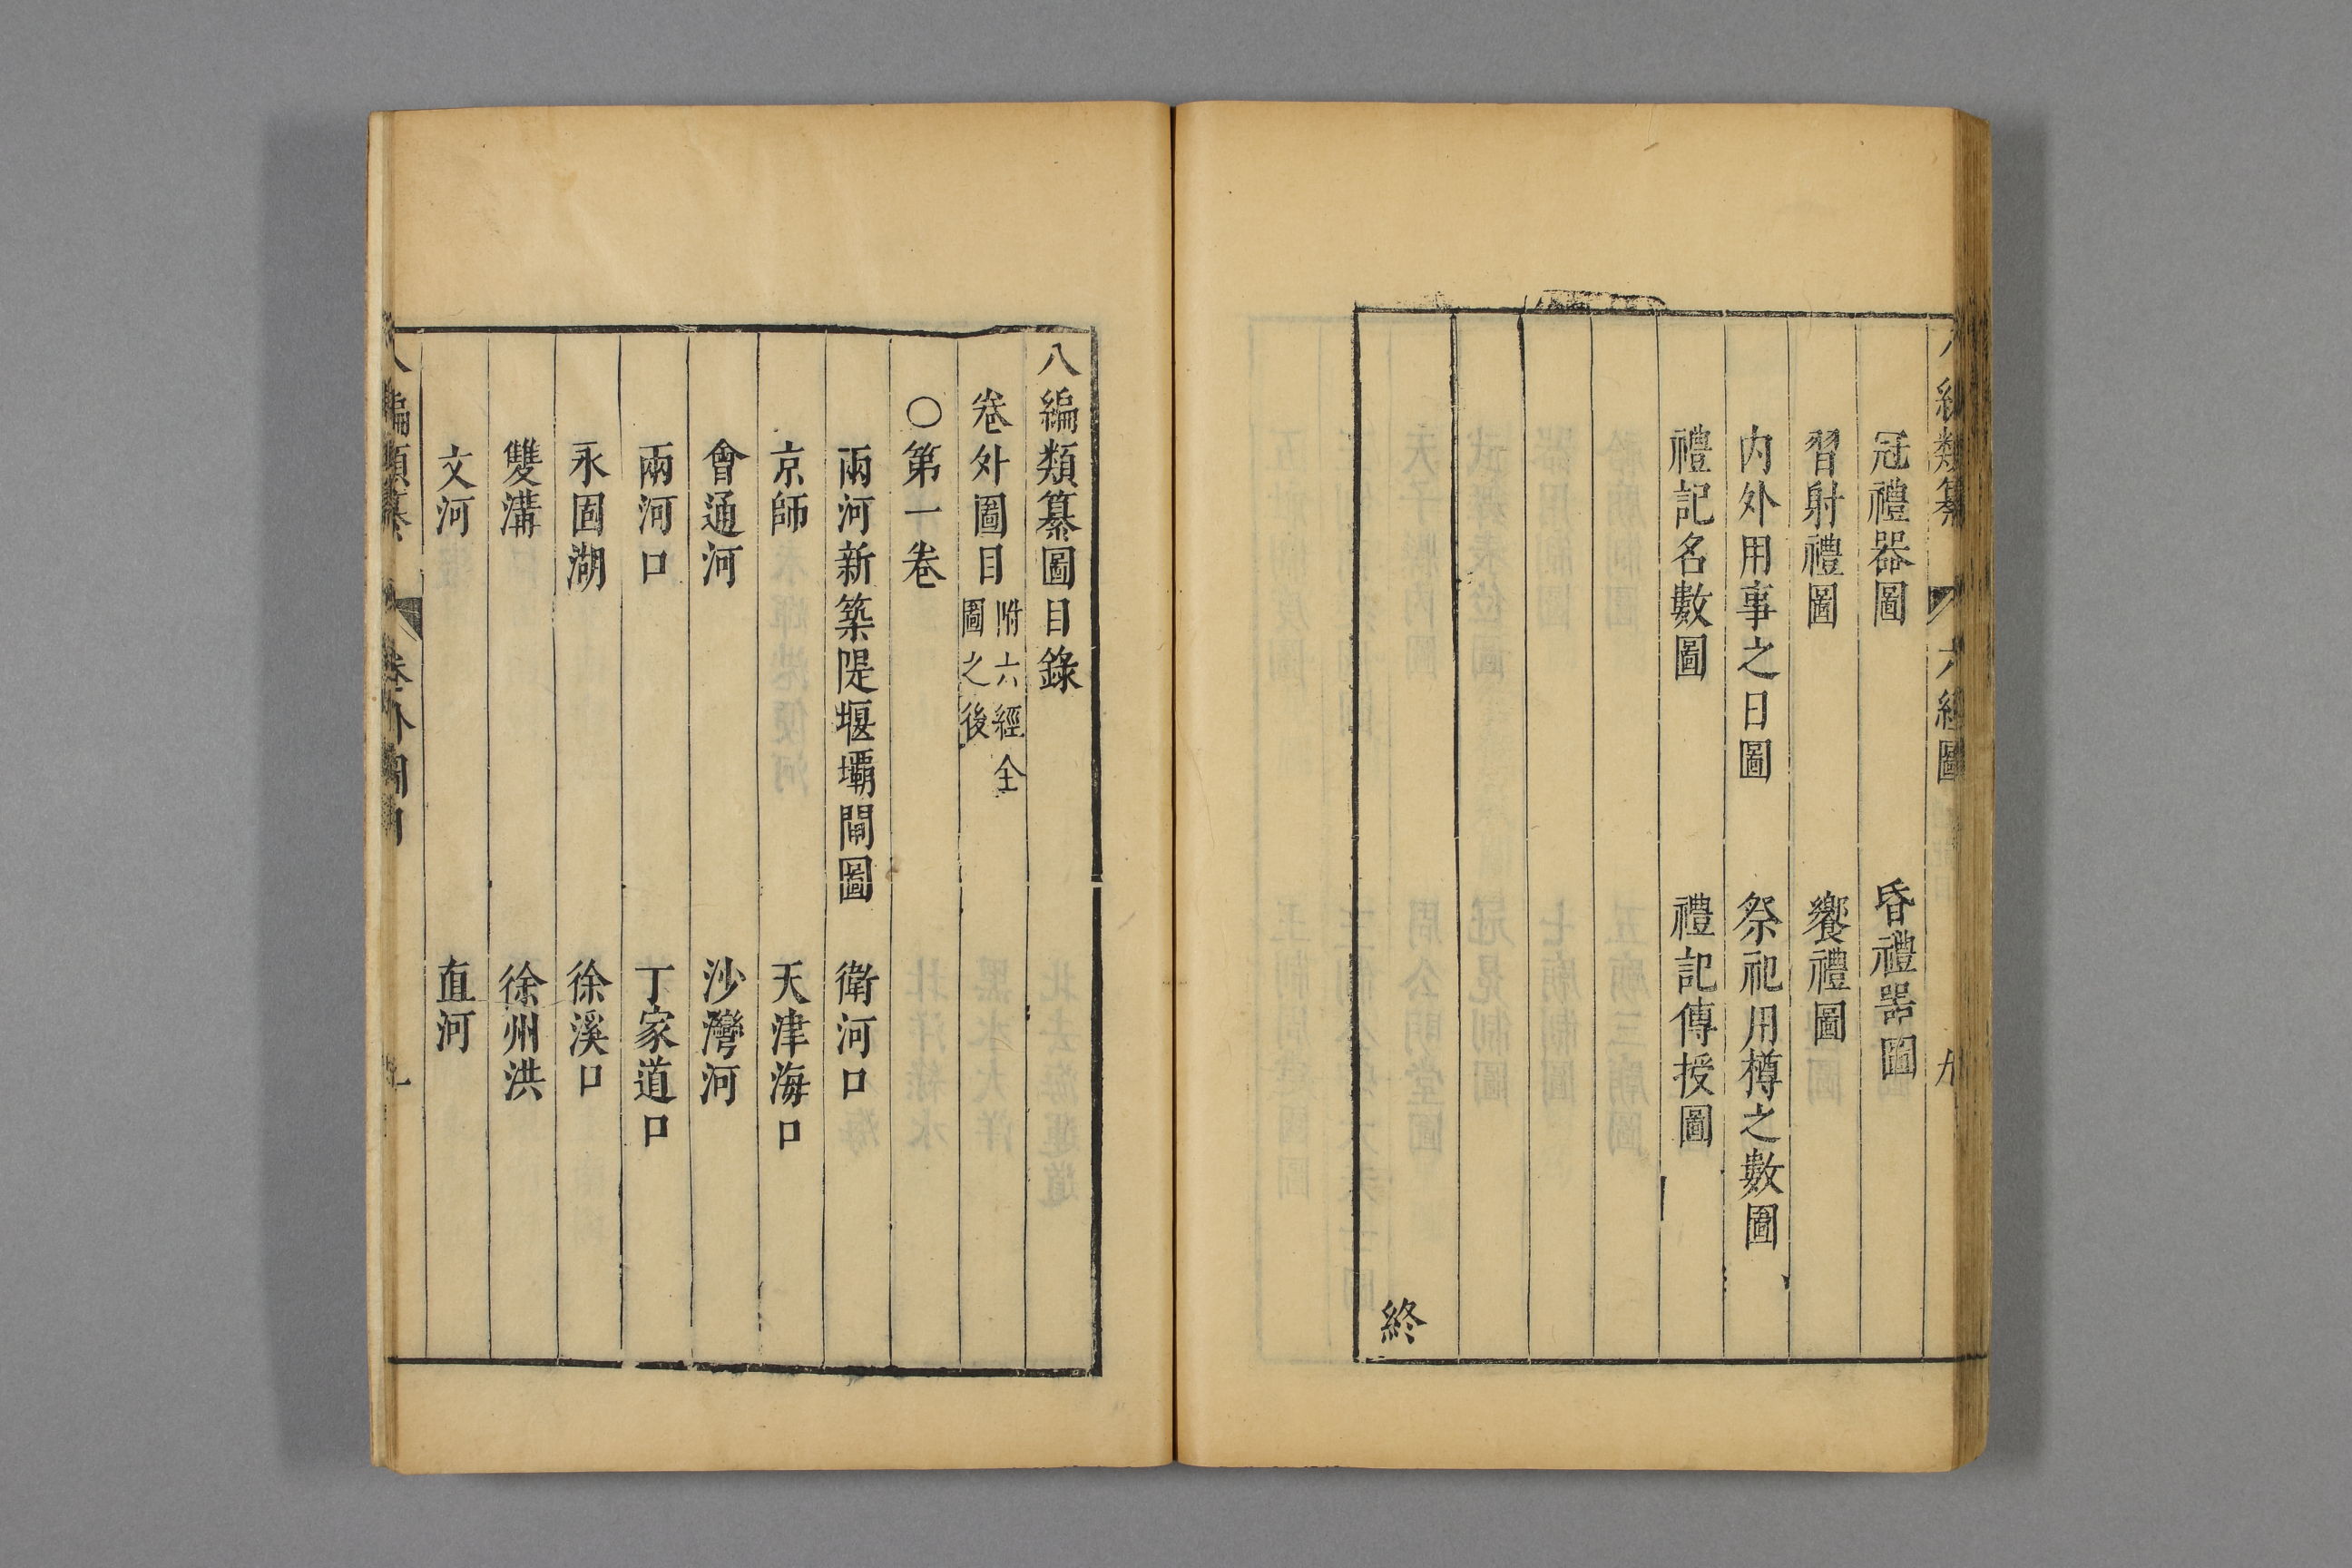 八編類纂 六經圖 九
冠禮器圖 昏禮器圖
習射禮圖 饗禮圖
內外用事之日圖 祭祀用樽之數圖
禮記名數圖 禮記傳授圖
終
八編類纂圖目錄
卷外圖目 附六經全
圖之後
○第一卷
兩河新築隄堰壩閘圖 衛河口
京師 天津海口
會通河 沙灣河
兩河口 丁家道口
永固湖 徐溪口
雙溝 徐州洪
文河 直河
八編類纂 卷外圖目